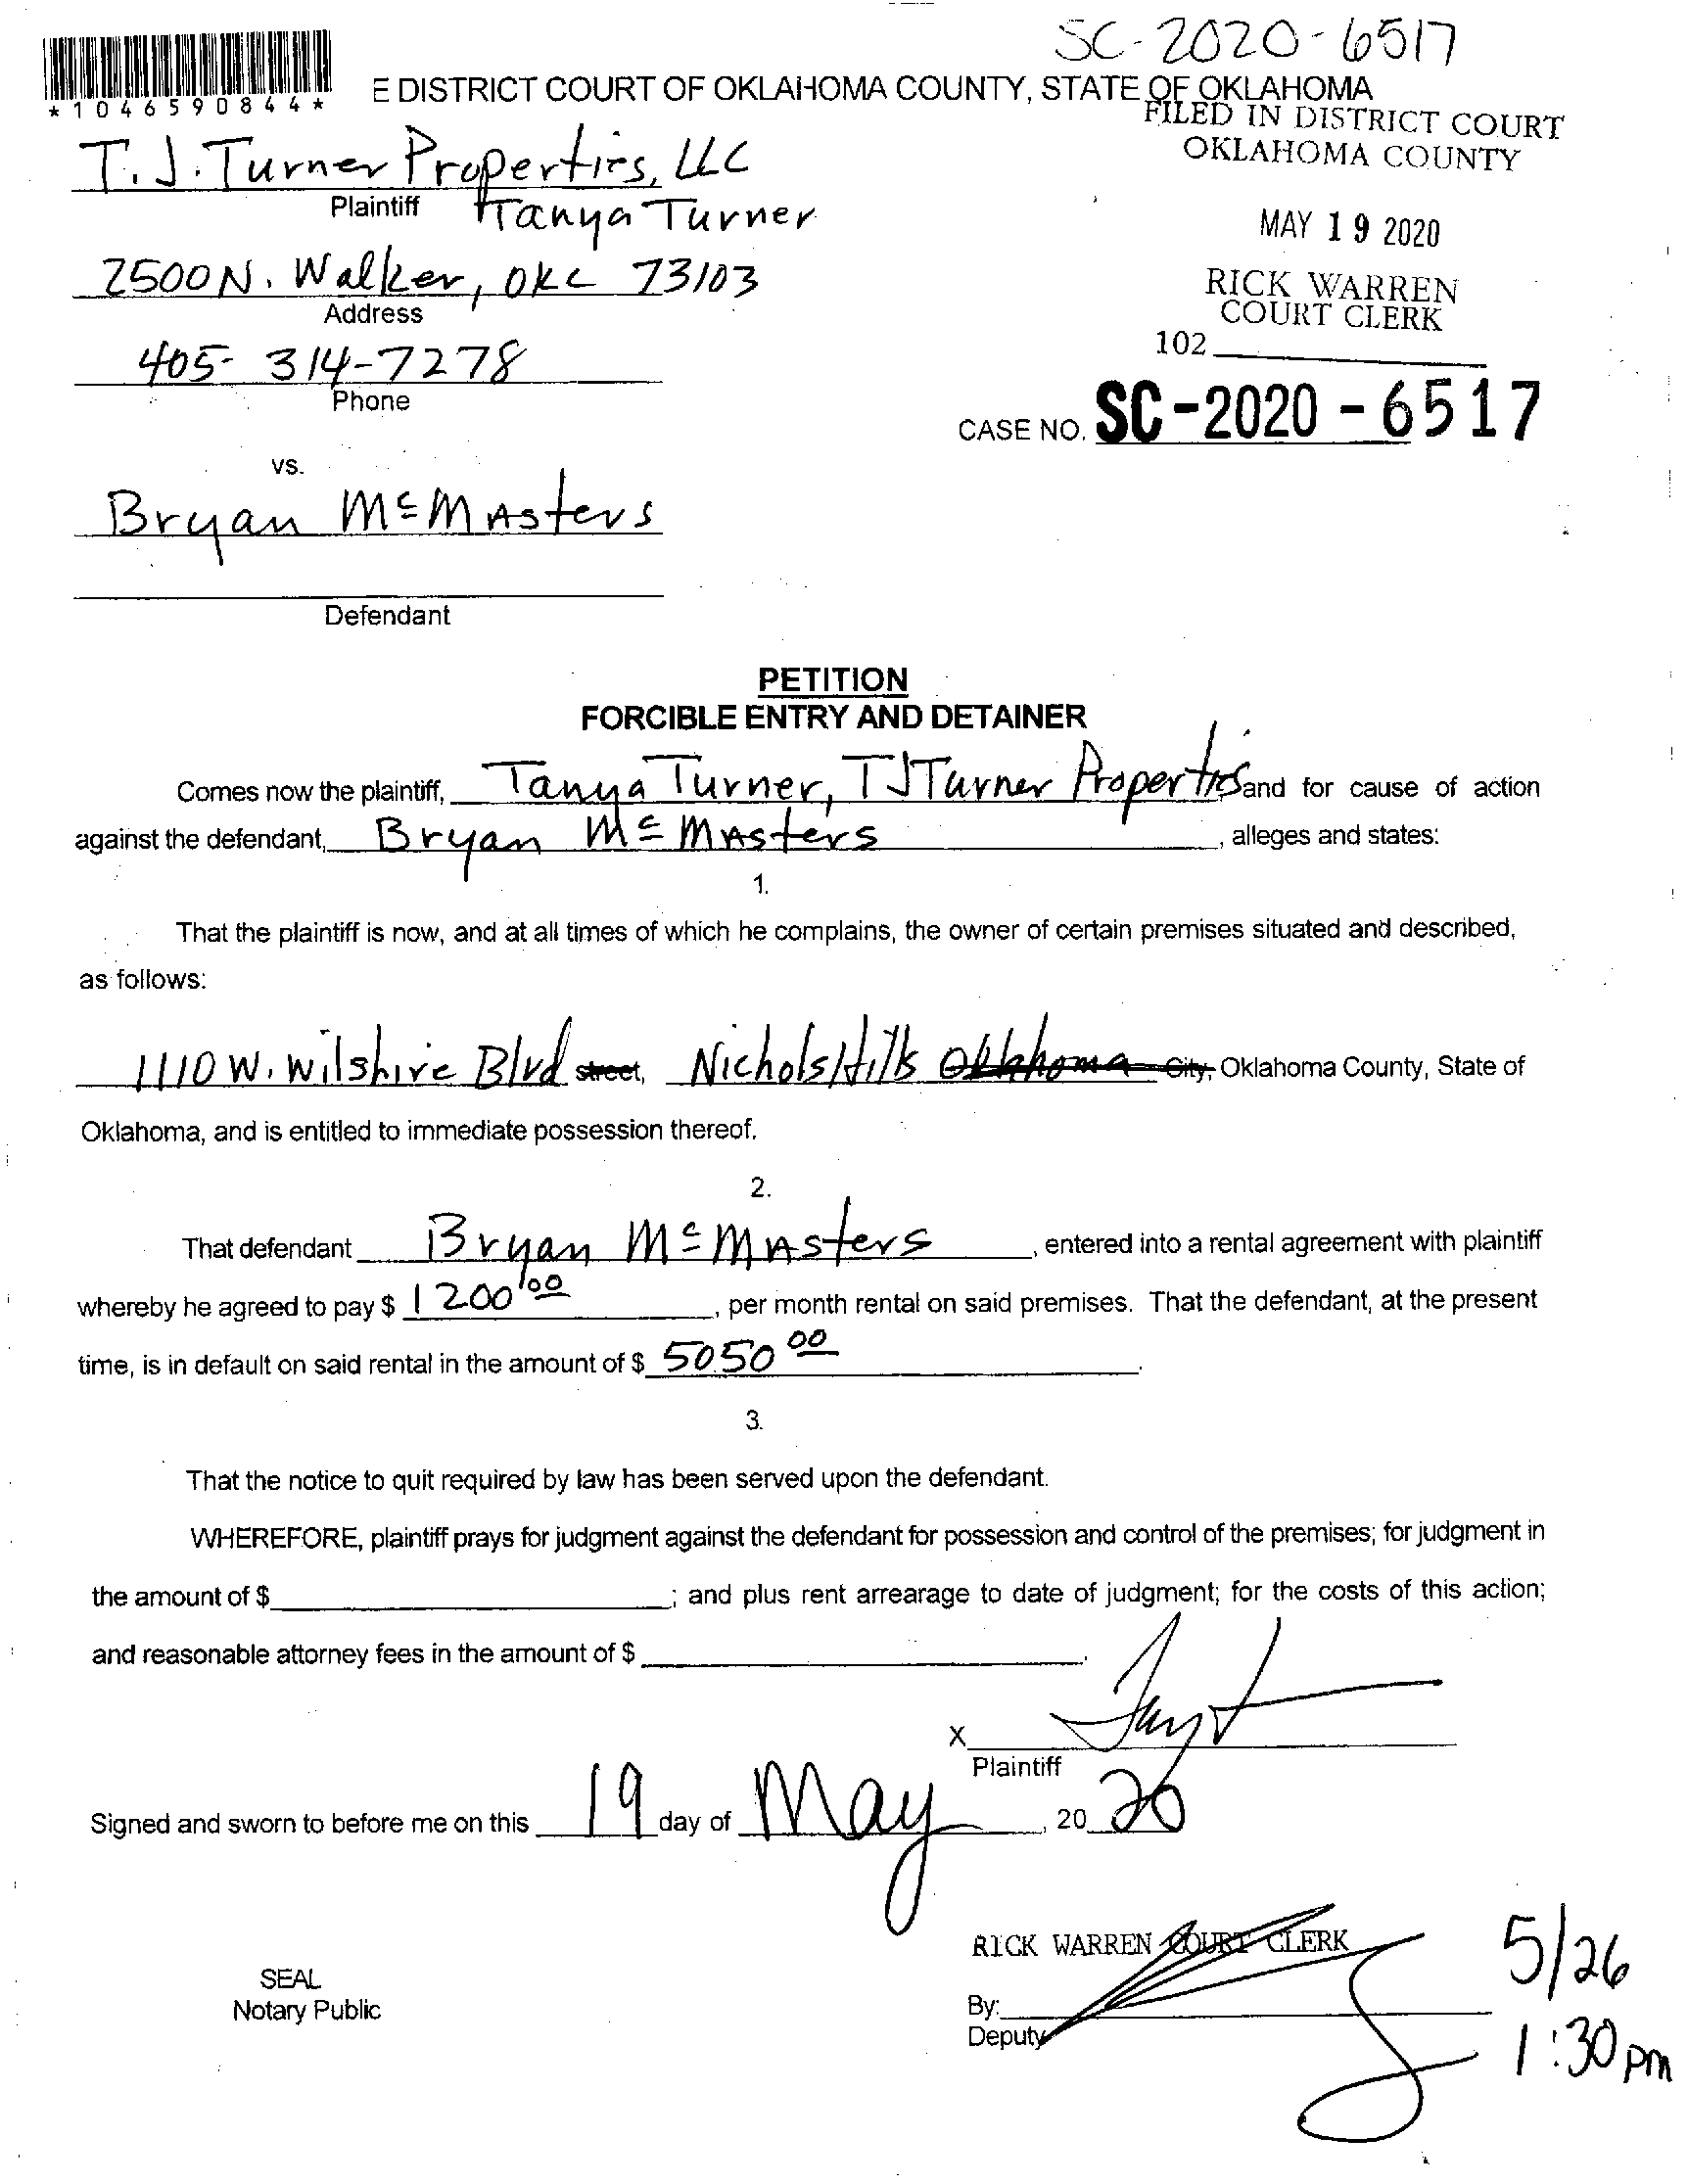 SC-2020-6517
*1046590844*
E DISTRICT COURT OF OKLAHOMA COUNTY, STATE OF OKLAHOMA
FILED IN DISTRICT COURT
OKLAHOMA COUNTY
T.J. Turner Properties, LLC
Plaintiff Tanya Turner
MAY 19 2020
2500 N. Walker, OKC 73103
Address
RICK WARREN
COURT CLERK
102
405-314-7278
Phone
CASE NO. SC-2020-6517
vs.
Bryan McMasters
Defendant
PETITION
FORCIBLE ENTRY AND DETAINER
Comes now the plaintiff, Tanya Turner, TJTurner Properties and for cause of action
against the defendant, Bryan McMasters, alleges and states:
1.
That the plaintiff is now, and at all times of which he complains, the owner of certain premises situated and described,
as follows:
1110 W. Wilshire Blvd street, Nichols Hills Oklahoma City, Oklahoma County, State of
Oklahoma, and is entitled to immediate possession thereof.
2.
That defendant Bryan McMasters, entered into a rental agreement with plaintiff
whereby he agreed to pay $ 1200.00, per month rental on said premises. That the defendant, at the present
time, is in default on said rental in the amount of $ 5050 00.
3.
That the notice to quit required by law has been served upon the defendant.
WHEREFORE, plaintiff prays for judgment against the defendant for possession and control of the premises; for judgment in
the amount of $ ; and plus rent arrearage to date of judgment; for the costs of this action;
and reasonable attorney fees in the amount of $ .
X
Plaintiff
Signed and sworn to before me on this 19 day of May, 20 20
RICK WARREN COURT CLERK
5/26
SEAL
Notary Public
By:
Deputy
1:30 pm